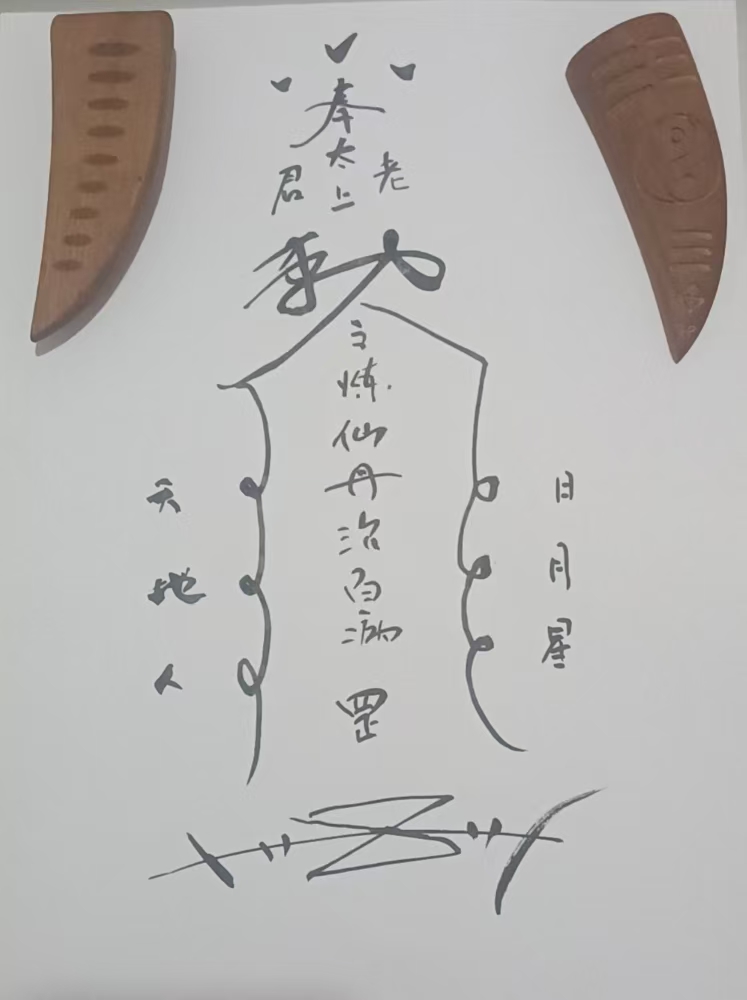 奉
太上
老
君
炼
仙
丹
治
百
病
罡
天
地
人
日
月
星